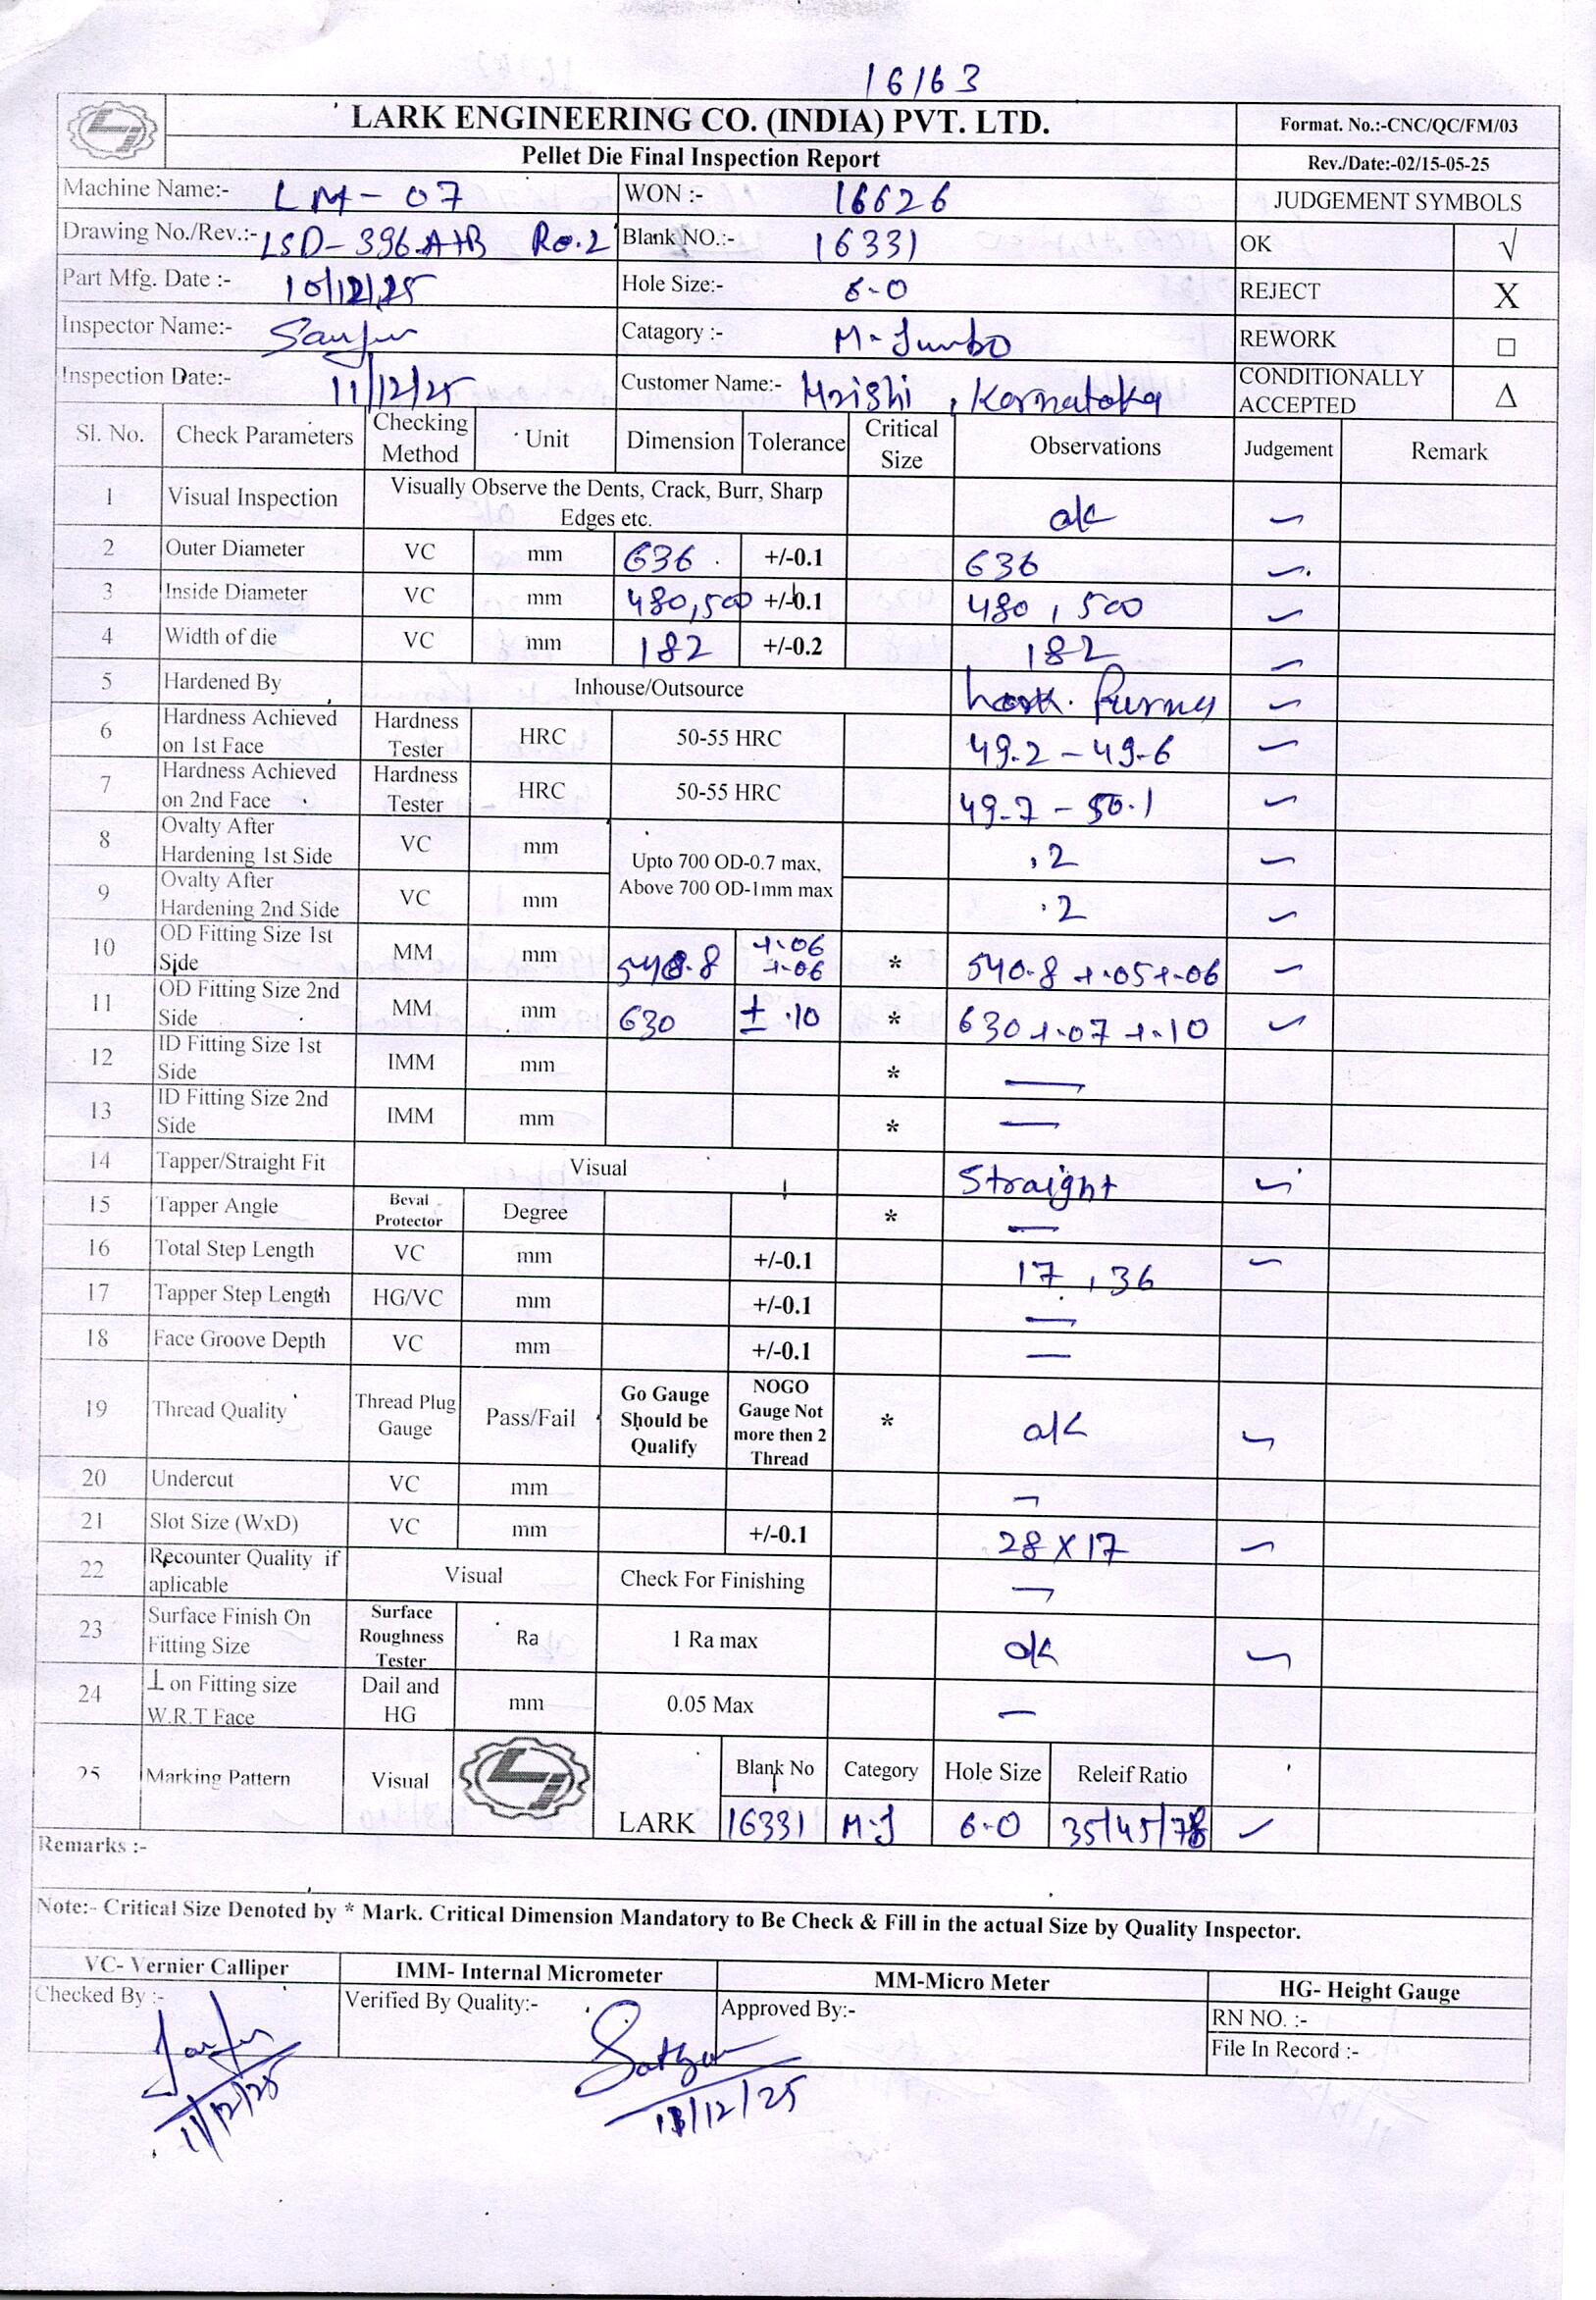 16163
LARK ENGINEERING CO. (INDIA) PVT. LTD.
Format. No.:-CNC/QC/FM/03
Pellet Die Final Inspection Report
Rev./Date:-02/15-05-25
Machine Name:- LM-07 WON :- 16626 JUDGEMENT SYMBOLS
Drawing No./Rev.:- LSD-396.A+B Ro.2 Blank NO.:- 16331 OK √
Part Mfg. Date :- 10/12/25 Hole Size:- 6-0 REJECT X
Inspector Name:- Catagory :- M-Jumbo REWORK □
Inspection Date:- 11/12/25 Customer Name:- Hrishi, Karnataka CONDITIONALLY ACCEPTED Δ
Sl. No. Check Parameters Checking Method Unit Dimension Tolerance Critical Size Observations Judgement Remark
1 Visual Inspection Visually Observe the Dents, Crack, Burr, Sharp Edges etc. ok
2 Outer Diameter VC mm 636 +/-0.1 636
3 Inside Diameter VC mm 480,500 +/-0.1 480, 500
4 Width of die VC mm 182 +/-0.2 182
5 Hardened By Inhouse/Outsource
6 Hardness Achieved on 1st Face Hardness Tester HRC 50-55 HRC 49.2 - 49-6
7 Hardness Achieved on 2nd Face Hardness Tester HRC 50-55 HRC 49-7 - 50.1
8 Ovalty After Hardening 1st Side VC mm Upto 700 OD-0.7 max, Above 700 OD-1mm max .2
9 Ovalty After Hardening 2nd Side VC mm .2
10 OD Fitting Size 1st Side MM mm 540.8 +.06 +.06 * 540.8 +.05+.06
11 OD Fitting Size 2nd Side MM mm 630 ± .10 * 630 +.07 +.10
12 ID Fitting Size 1st Side IMM mm * —
13 ID Fitting Size 2nd Side IMM mm * —
14 Tapper/Straight Fit Visual Straight
15 Tapper Angle Beval Protector Degree * —
16 Total Step Length VC mm +/-0.1 17, 36
17 Tapper Step Length HG/VC mm +/-0.1 —
18 Face Groove Depth VC mm +/-0.1 —
19 Thread Quality Thread Plug Gauge Pass/Fail Go Gauge Should be Qualify NOGO Gauge Not more then 2 Thread * ok
20 Undercut VC mm —
21 Slot Size (WxD) VC mm +/-0.1 28 X 17
22 Recounter Quality if aplicable Visual Check For Finishing —
23 Surface Finish On Fitting Size Surface Roughness Tester Ra 1 Ra max ok
24 ⊥ on Fitting size W.R.T Face Dail and HG mm 0.05 Max —
25 Marking Pattern Visual LARK Blank No Category Hole Size Releif Ratio
16331 M-J 6-0 35/45/78
Remarks :-
Note:- Critical Size Denoted by * Mark. Critical Dimension Mandatory to Be Check & Fill in the actual Size by Quality Inspector.
VC- Vernier Calliper IMM- Internal Micrometer MM-Micro Meter HG- Height Gauge
Checked By :- Verified By Quality:- Approved By:- RN NO. :-
File In Record :-
11/12/25
11/12/25